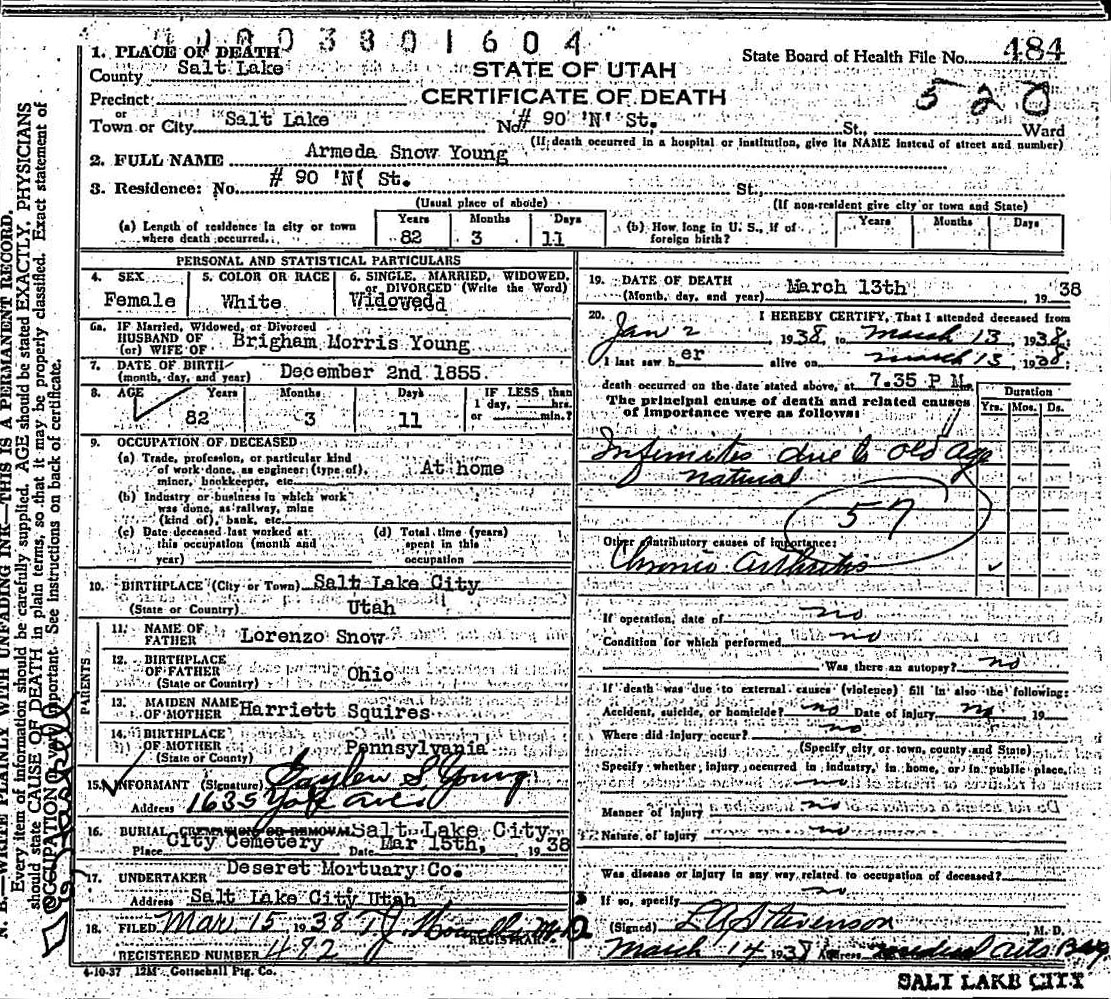 1003801604
1. PLACE OF DEATH
State Board of Health File No. 484
County Salt Lake
STATE OF UTAH
520
Precinct
CERTIFICATE OF DEATH
or
Town or City Salt Lake No. # 90 'N' St. St., Ward
(If death occurred in a hospital or institution, give its NAME instead of street and number)
2. FULL NAME Armeda Snow Young
3. Residence: No. # 90 'N( St. St.,
(Usual place of abode) (If non-resident give city or town and State)
(a) Length of residence in city or town where death occurred. Years 82 Months 3 Days 11
(b) How long in U. S., if of foreign birth? Years Months Days
PERSONAL AND STATISTICAL PARTICULARS
4. SEX Female
5. COLOR OR RACE White
6. SINGLE, MARRIED, WIDOWED, or DIVORCED (Write the Word) Widowedd
6a. IF Married, Widowed, or Divorced
HUSBAND OF
(or) WIFE OF Brigham Morris Young
7. DATE OF BIRTH
(month, day, and year) December 2nd 1855.
8. AGE Years 82 Months 3 Days 11 IF LESS than 1 day, hrs. or min.?
9. OCCUPATION OF DECEASED
(a) Trade, profession, or particular kind
of work done, as engineer (type of),
miner, bookkeeper, etc. At home
(b) Industry or business in which work
was done, as railway, mine
(kind of), bank, etc.
(c) Date deceased last worked at
this occupation (month and
year)
(d) Total time (years)
spent in this
occupation
10. BIRTHPLACE (City or Town) Salt Lake City
(State or Country) Utah
PARENTS
11. NAME OF
FATHER Lorenzo Snow
12. BIRTHPLACE
OF FATHER Ohio
(State or Country)
13. MAIDEN NAME
OF MOTHER Harriett Squires
14. BIRTHPLACE
OF MOTHER Pennsylvania
(State or Country)
15. INFORMANT (Signature) Gaylen S. Young
Address 1635 Yale Ave
16. BURIAL CREMATION OR REMOVAL Salt Lake City
Place City Cemetery Date Mar 15th, 1938
17. UNDERTAKER Deseret Mortuary Co.
Address Salt Lake City Utah
18. FILED Mar. 15 1938 T.J. Howells M.D
REGISTRAR.
REGISTERED NUMBER 492
4-10-37 12M Gottschall Ptg. Co.
19. DATE OF DEATH March 13th 1938
(Month, day, and year)
20. I HEREBY CERTIFY, That I attended deceased from
Jan 2 1938, to March 13 1938.
I last saw her alive on March 13 1938
death occurred on the date stated above, at 7.35 P M.
The principal cause of death and related causes
of importance were as follows:
Duration
Yrs. Mos. Ds.
Infirmites due to old Age
natural
57
Other contributory causes of importance:
Chronic arthritis
If operation, date of no
Condition for which performed no
Was there an autopsy? no
If death was due to external causes (violence) fill in also the following:
Accident, suicide, or homicide? no Date of injury no 19
Where did injury occur? no
(Specify city or town, county and State)
Specify whether injury occurred in industry, in home, or in public place.
no
Manner of injury no
Nature of injury no
Was disease or injury in any way related to occupation of deceased?
no
If so, specify
(Signed) L A Stevenson M. D.
March 14 1938 Address Arts Bdg
SALT LAKE CITY
N. B.—WRITE PLAINLY WITH UNFADING INK—THIS IS A PERMANENT RECORD.
Every item of information should be carefully supplied. AGE should be stated EXACTLY, PHYSICIANS
should state CAUSE OF DEATH in plain terms, so that it may be properly classified. Exact statement of
OCCUPATION is very important. See instructions on back of certificate.